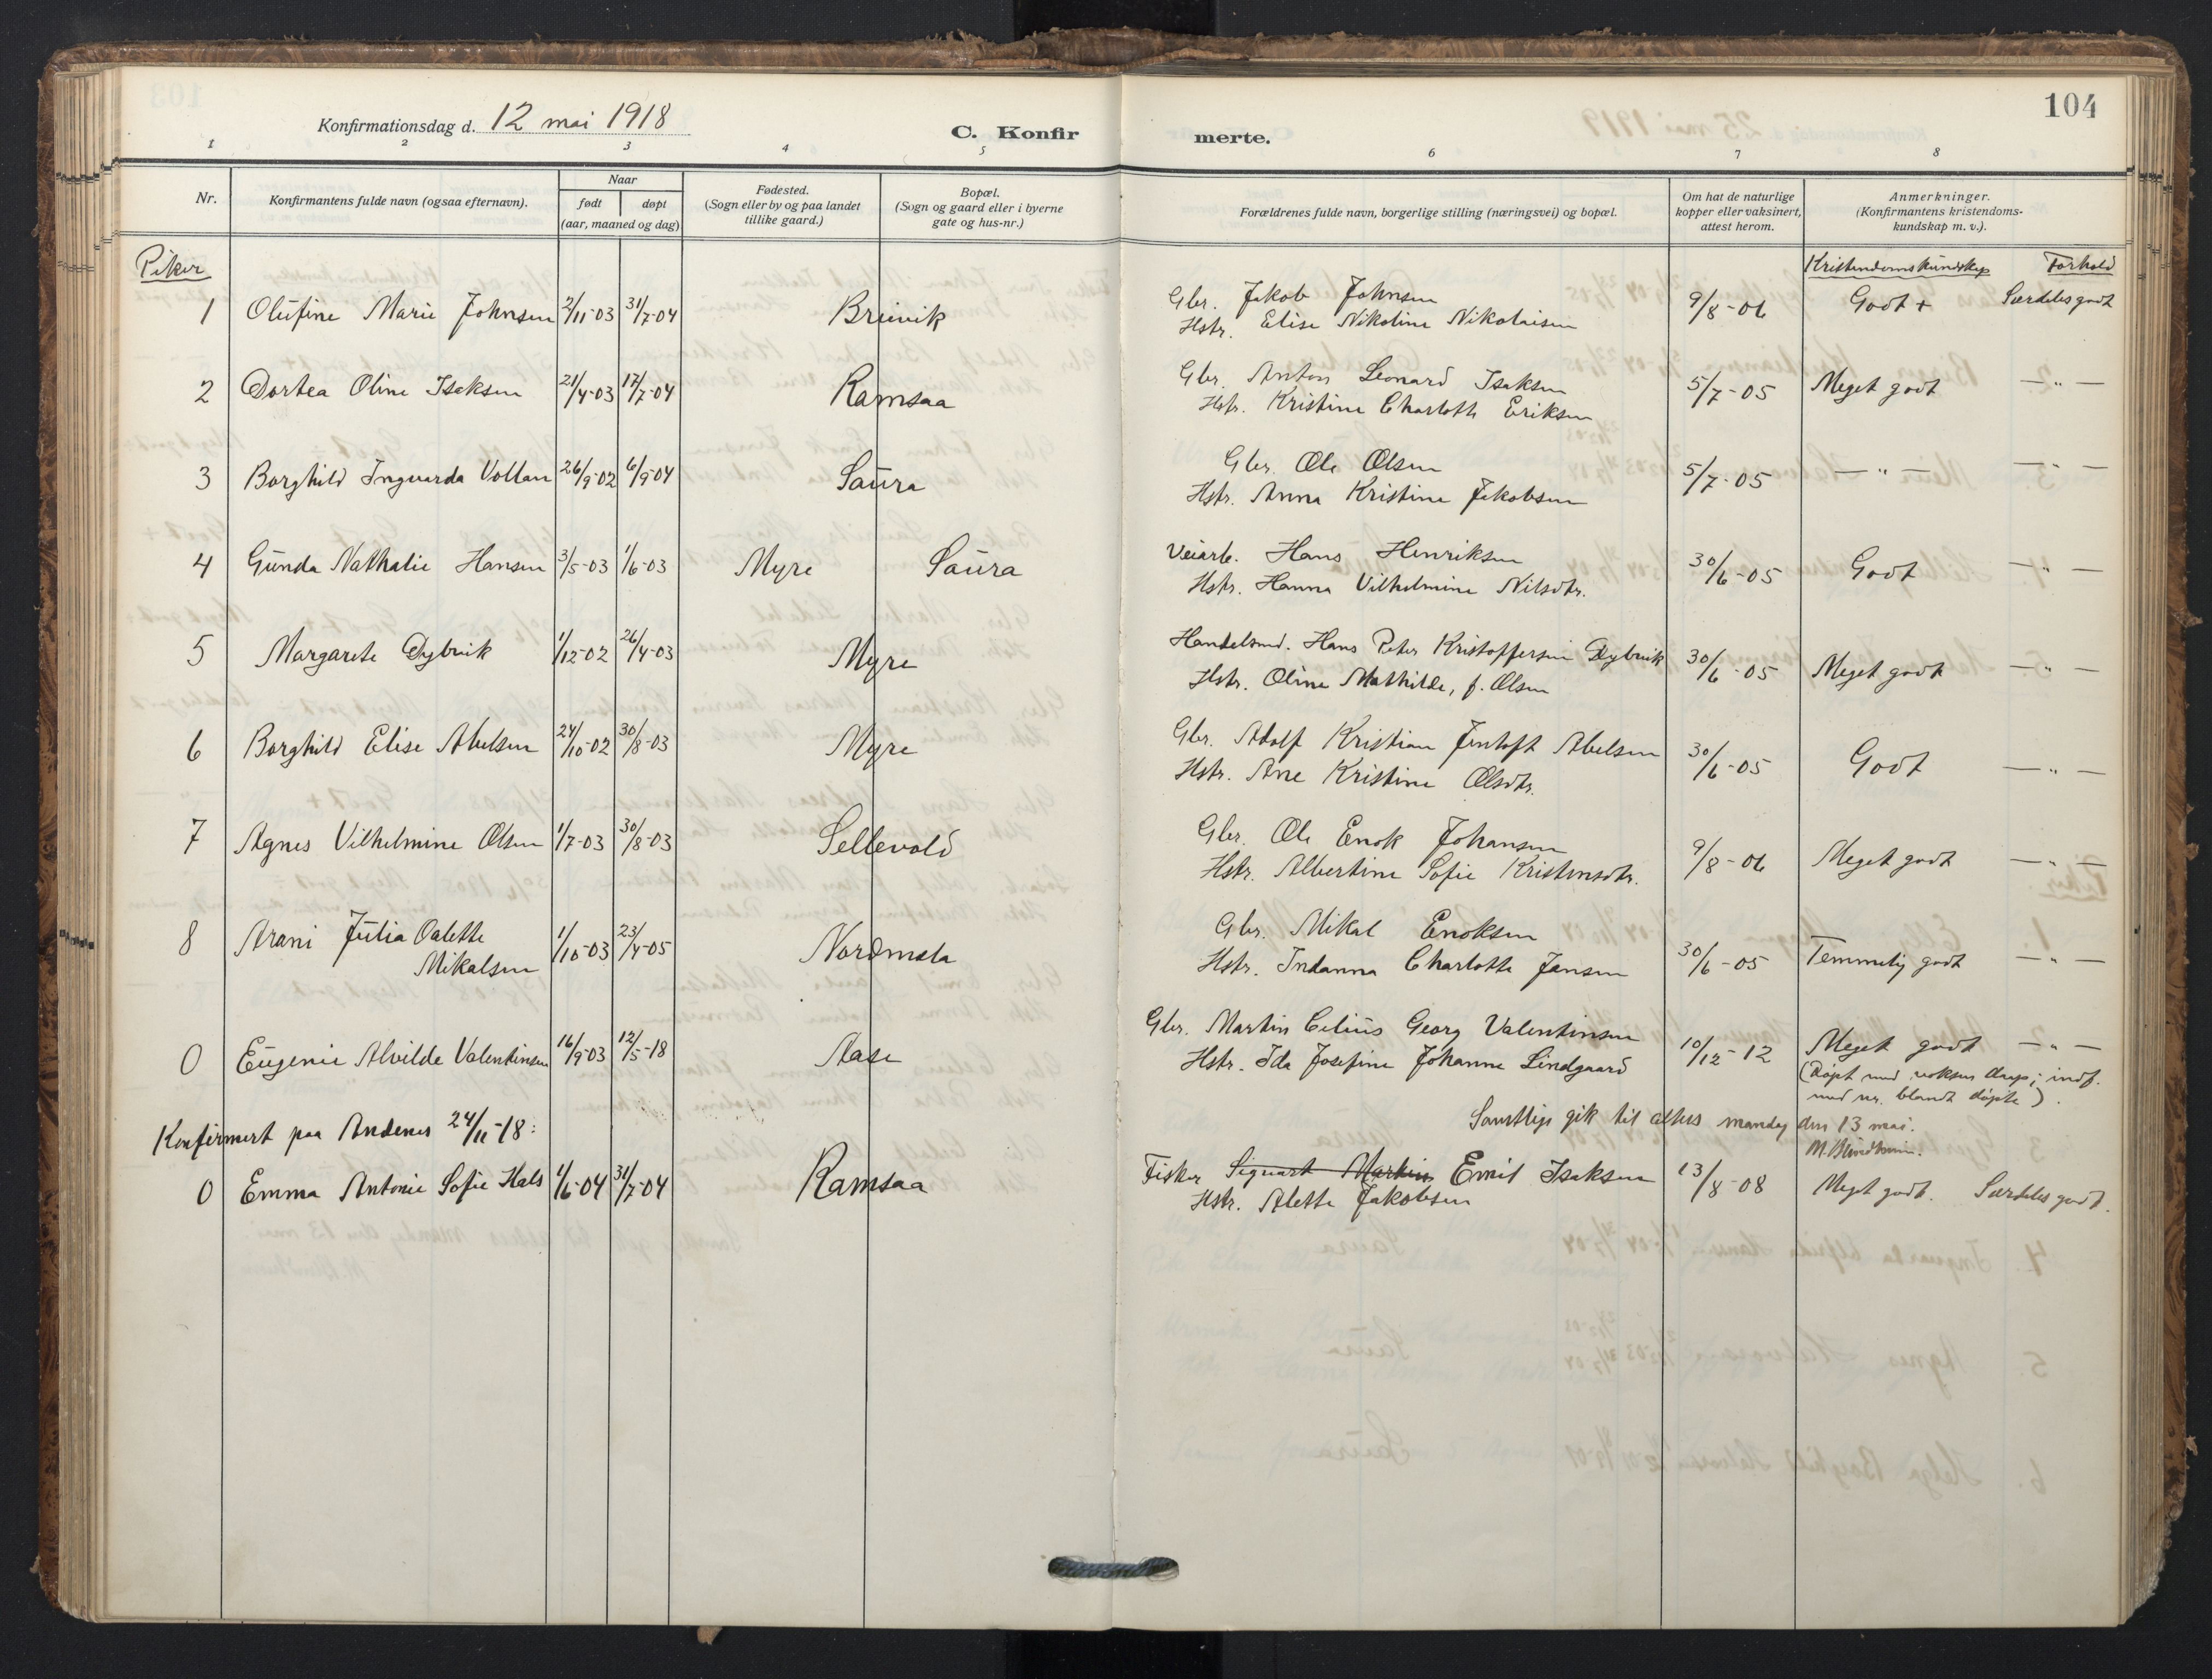 104
Konfirmationsdag d. 12 mai 1918
C. Konfirmerte.
1 2 3 4 5 6 7 8
Nr.
Konfirmantens fulde navn (ogsaa efternavn).
Naar
født døpt
(aar, maaned og dag)
Fødested.
(Sogn eller by og paa landet
tillike gaard.)
Bopæl.
(Sogn og gaard eller i byerne
gate og hus-nr.)
Forældrenes fulde navn, borgerlige stilling (næringsvei) og bopæl.
Om hat de naturlige
kopper eller vaksinert,
attest herom.
Anmerkninger.
(Konfirmantens kristendoms-
kundskap m. v.).
Piker
Kristendomskundskap Forhold
1 Olufine Marie Johnsen 2/11-03 31/7-04 Breivik Gbr. Jakob Johnsen 9/8-06 Godt + Særdeles godt
Hstr. Elise Nikoline Nikolaisen
2 Dortea Oline Isaksen 21/4-03 17/7-04 Ramsaa Gbr. Anton Leonard Isaksen 5/7-05 Meget godt — " —
Hstr. Kristine Charlotte Eriksen
3 Borghild Ingvarda Voltan 26/9-02 6/9-04 Saura Gbr. Ole Olsen 5/7-05 — " — — " —
Hstr. Anna Kristine Jakobsen
4 Gunda Nathalie Hansen 3/5-03 1/6-03 Myre Saura Veiarb. Hans Henriksen 30/6-05 Godt — " —
Hstr. Hanna Vilhelmine Nilsdtr.
5 Margarete Dybvik 1/12-02 26/4-03 Myre Handelsmd. Hans Peter Kristoffersen Dybvik 30/6-05 Meget godt — " —
Hstr. Oline Mathilde, f. Olsen
6 Borghild Elise Abelsen 24/10-02 30/8-03 Myre Gbr. Adolf Kristian Jentoft Abelsen 30/6-05 Godt — " —
Hstr. Ane Kristine Olsdtr.
7 Agnes Vilhelmine Olsen 1/7-03 30/8-03 Sellevold Gbr. Ole Enok Johansen 9/8-06 Meget godt — " —
Hstr. Albertine Sofie Kristensdtr.
8 Arani Julia Oalette 1/10-03 23/4-05 Nordmela Gbr. Mikal Enoksen 30/6-05 Temmelig godt — " —
Mikalsen Hstr. Indanna Charlotte Jansen
0 Eugenie Alvilde Valentinsen 16/9-03 12/5-18 Aase Gbr. Martin Celius Georg Valentinsen 10/12-12 Meget godt — " —
Hstr. Ida Josefine Johanne Lindgaard (Døpt med voksen daap; indf.
med nr. blandt døpte).
Samtlige gik til alters mandag den 13 mai.
Konfirmert paa Andenes 24/11-18:
0 Emma Antonie Sofie Hals 1/6-04 31/7-04 Ramsaa Fisker Siguart Martin Emil Isaksen 13/8-08 Meget godt. Særdeles godt.
Hstr. Alette Jakobsen